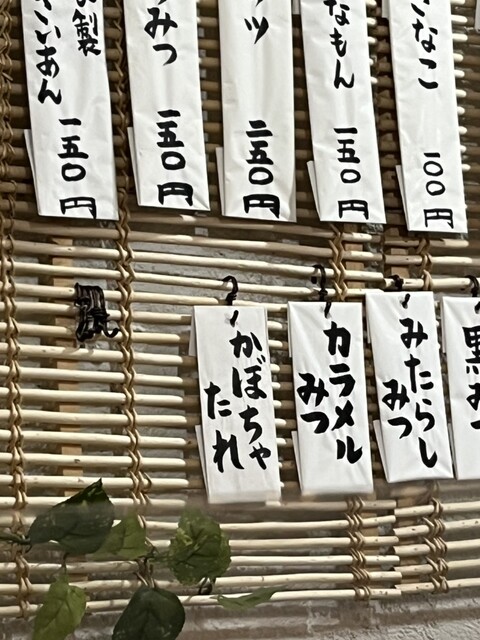 なこ 一〇〇円
なもん 一五〇円
ツ 二五〇円
みつ 一五〇円
製
いあん 一五〇円
黒み
みたらし
みつ
カラメル
みつ
かぼちゃ
たれ